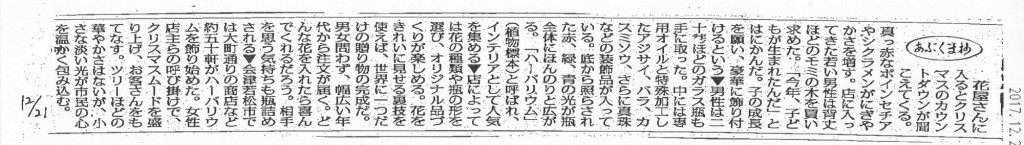 2017.12.2
あぶくま抄
花屋さんに
入るとクリス
マスのカウン
トダウンが聞
こえてくる。
真っ赤なポインセチア
やシクラメンがにぎや
かさを増す。店に入っ
てきた若い男性は背丈
ほどのモミの木を買い
求めた。「今年、子ど
もが生まれたんだ」と
はにかんだ。子の成長
を願い、豪華に飾り付
けるという▼男性は二
十㌢ほどのガラス瓶も
手に取った。中には専
用オイルと特殊加工し
たアジサイ、バラ、カ
スミソウ、さらに真珠
などの装飾品が入って
いる。底から照らされ
た赤、緑、青の光が瓶
全体にほんのりと広が
る。「ハーバリウム」
(植物標本)と呼ばれ、
インテリアとして人気
を集める▼店によって
は花の種類や瓶の形を
選び、オリジナル品づ
くりが楽しめる。花を
きれいに見せる裏技を
使えば、世界に一つだ
けの贈り物の完成だ。
男女問わず、幅広い年
代から注文が届く。ど
んな花を入れたら喜ん
でくれるだろう。相手
を思う気持ちも瓶詰め
される▼会津若松市で
は大町通りの商店など
約五十軒がハーバリウ
ムを飾り始めた。女性
店主らの呼び掛けで、
クリスマスムードを盛
り上げ、お客さんをも
てなす。ツリーほどの
華やかさはないが、小
さな淡い光が市民の心
を温かく包み込む。
12/21